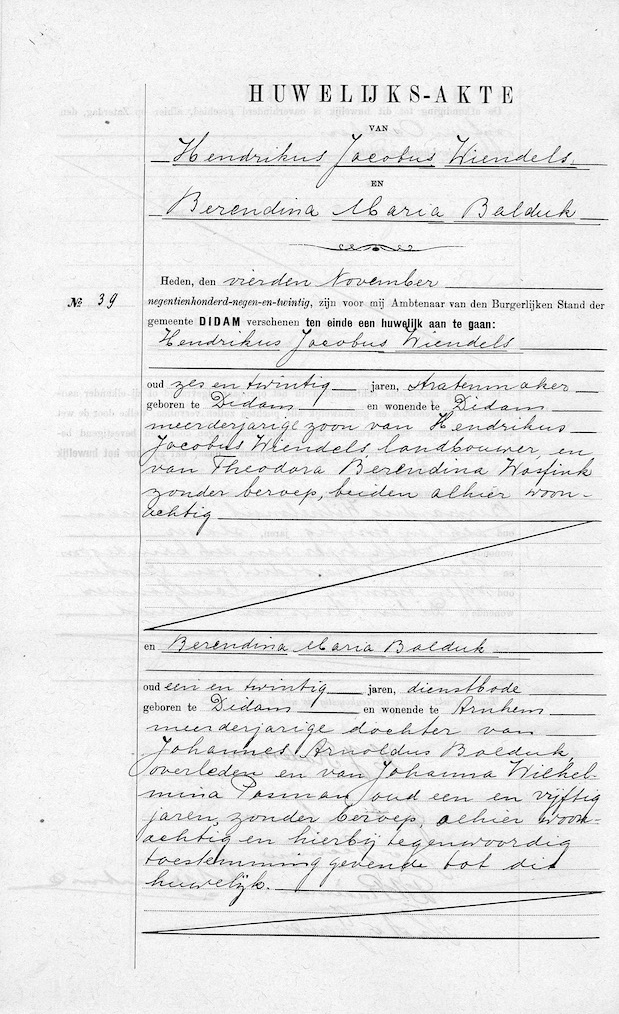 HUWELIJKS-AKTE
VAN
Hendrikus Jacobus Wiendels
EN
Berendina Maria Balduk
Heden, den vierden November
№ 39
negentienhonderd-negen-en-twintig, zijn voor mij Ambtenaar van den Burgerlijken Stand der
gemeente DIDAM verschenen ten einde een huwelijk aan te gaan:
Hendrikus Jacobus Wiendels
oud zes en twintig jaren, stratenmaker
geboren te Didam en wonende te Didam
meerderjarige zoon van Hendrikus
Jacobus Wiendels, landbouwer, en
van Theodora Berendina Wasfink
zonder beroep, beiden alhier woon-
achtig
en Berendina Maria Balduk
oud een en twintig jaren, dienstbode
geboren te Didam en wonende te Arnhem
meerderjarige dochter van
Johannes Arnoldus Balduk,
overleden en van Johanna Wilhel-
mina Pasman, oud een en vijftig
jaren, zonder beroep, alhier woon-
achtig en hierbij tegenwoordig
toestemming gevende tot dit
huwelijk.